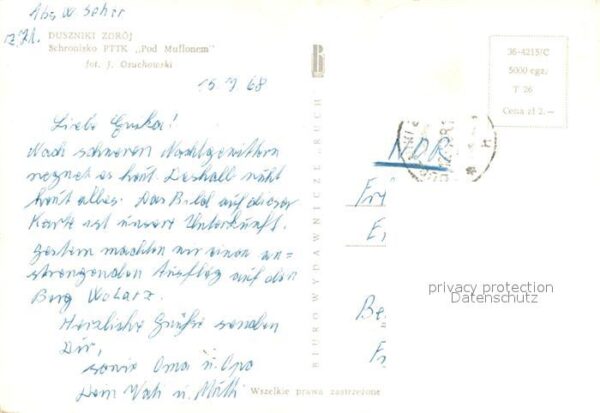 Abs. W. Seher
z. Zt.
DUSZNIKI ZDRÓJ
Schronisko PTTK „Pod Muflonem"
fot. J. Osuchowski
15. 7 68
Liebe !
Nach schweren Nachtgewittern
regnet es heut. Deshalb ruht
heut alles. Das Bild auf dieser
Karte ist unsere Unterkunft.
Gestern machten wir einen an-
strengenden Ausflug auf den
Berg
Herzliche Grüße senden
Dir,
sowie Oma u. Opa
Dem Vati u. Mutti
BIURO WYDAWNICZE „RUCH"
36-4215/C
5000 egz.
T 26
Cena zł 2.—
NDR
privacy protection
Datenschutz
Wszelkie prawa zastrzeżone